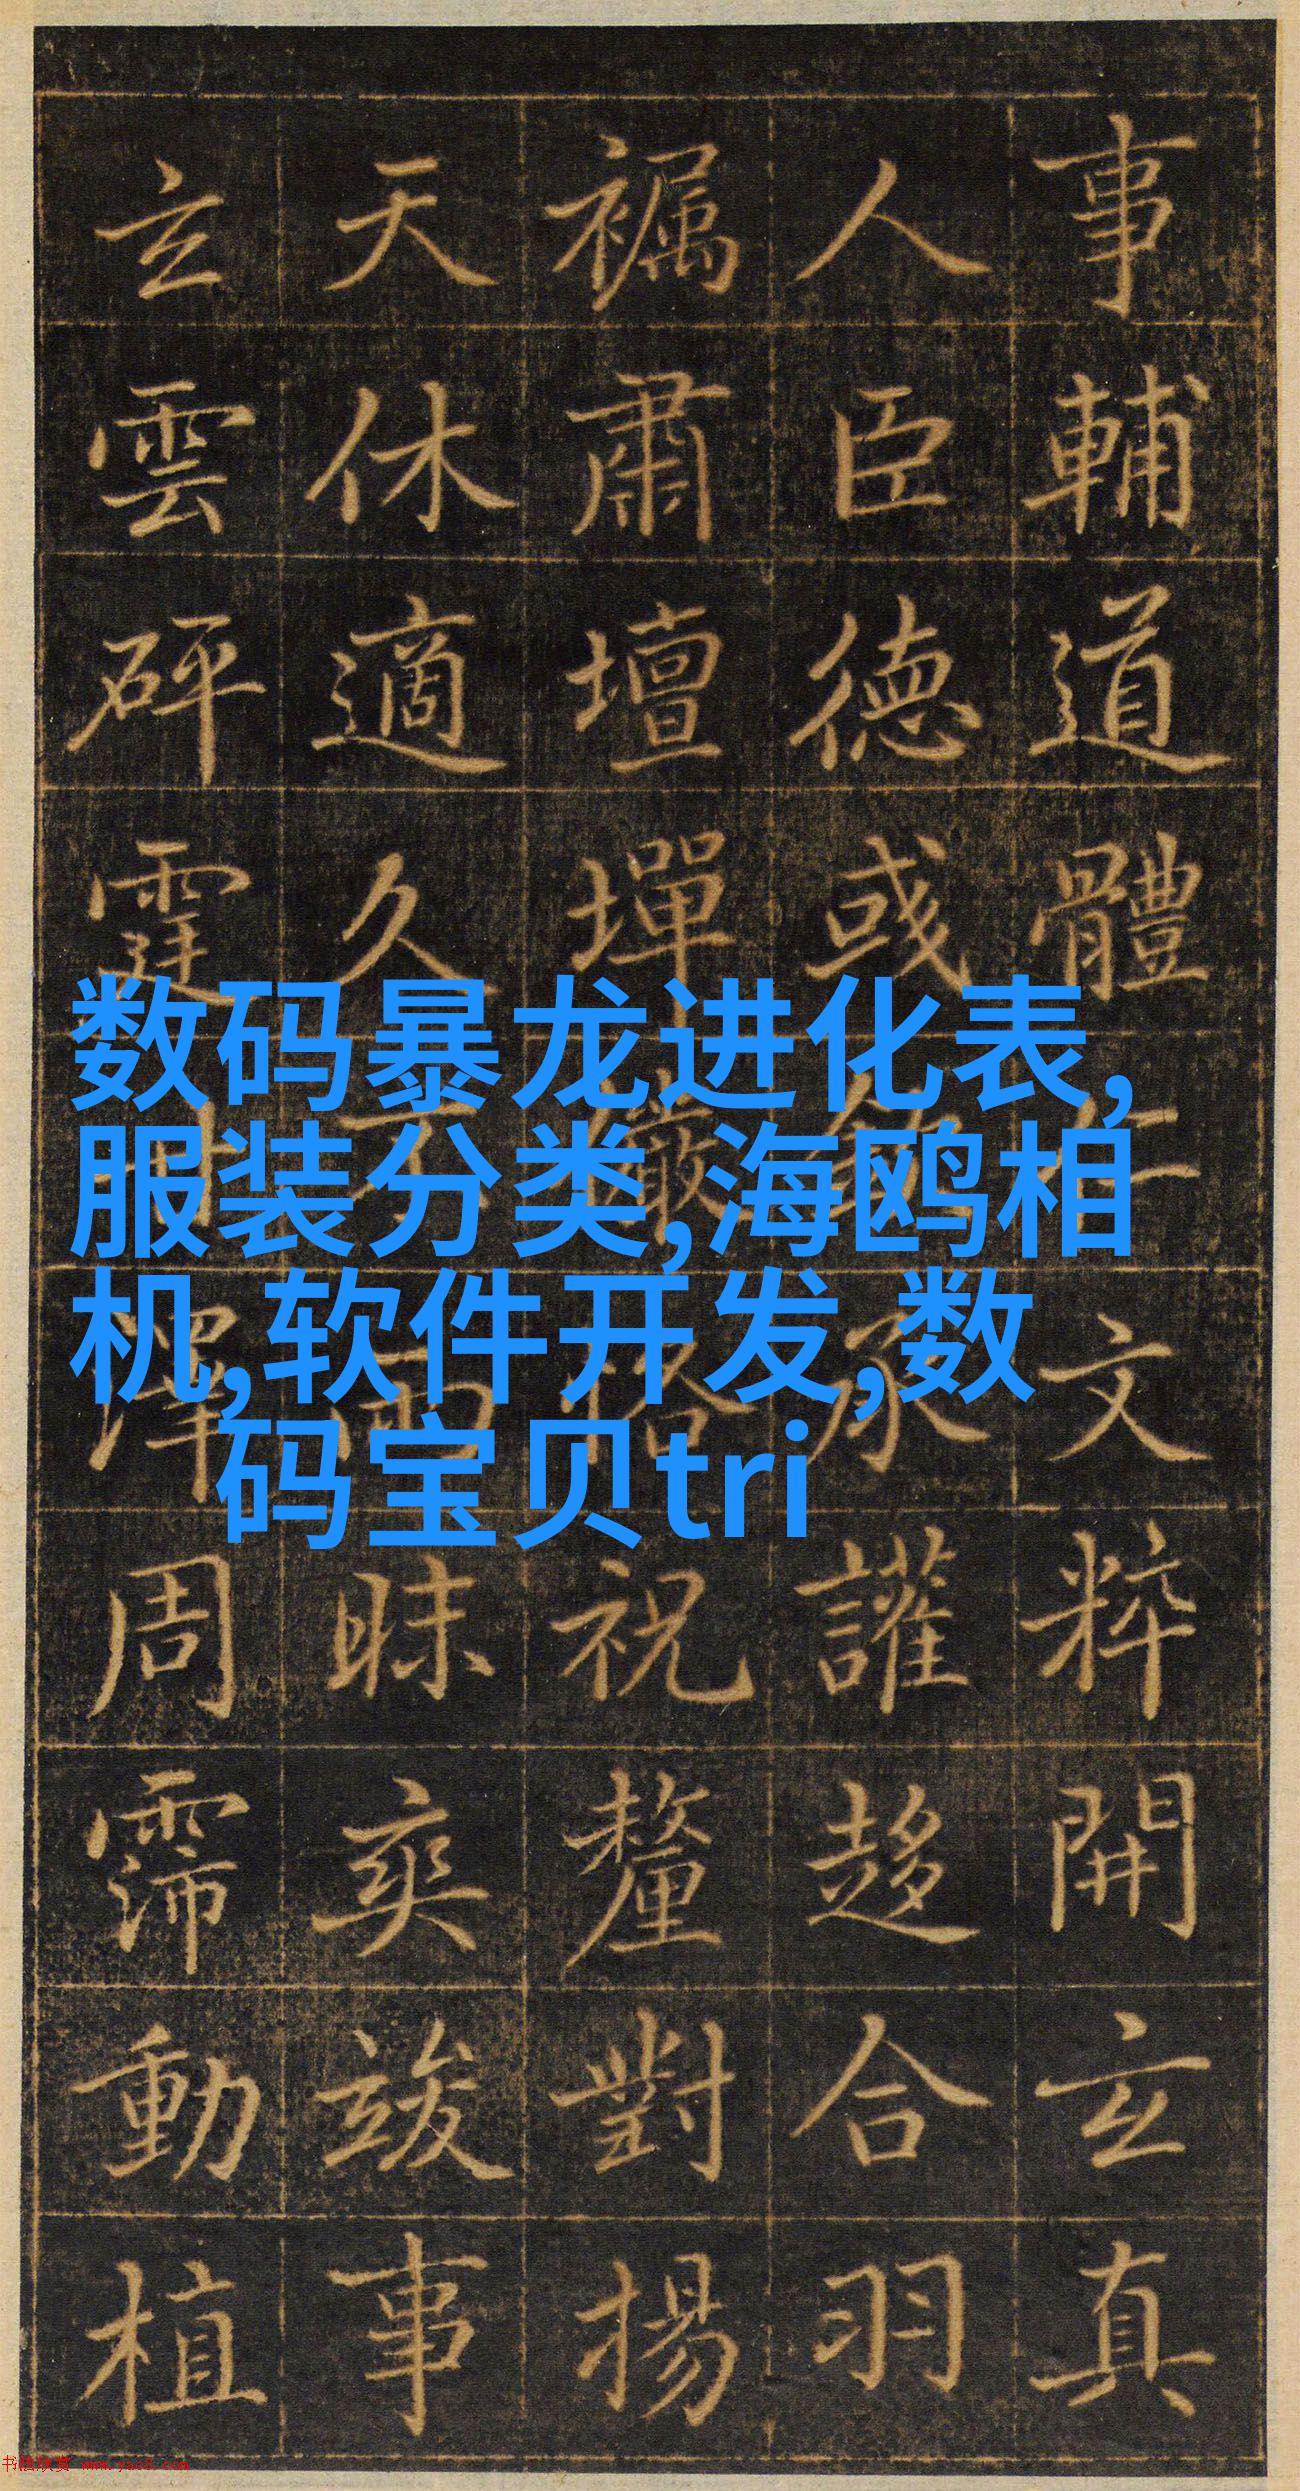 事輔道體仁文粹開玄真
人臣德或承讙趍合羽
襡肅壇墠恪祝釐對揚
天休適久不雨昧爽竣事
玄雲砰霆甘澤周霈動植
数码暴龙进化表,
服装分类,海鸥相
机,软件开发,数
码宝贝tri
书法欣赏 www.yac8.com